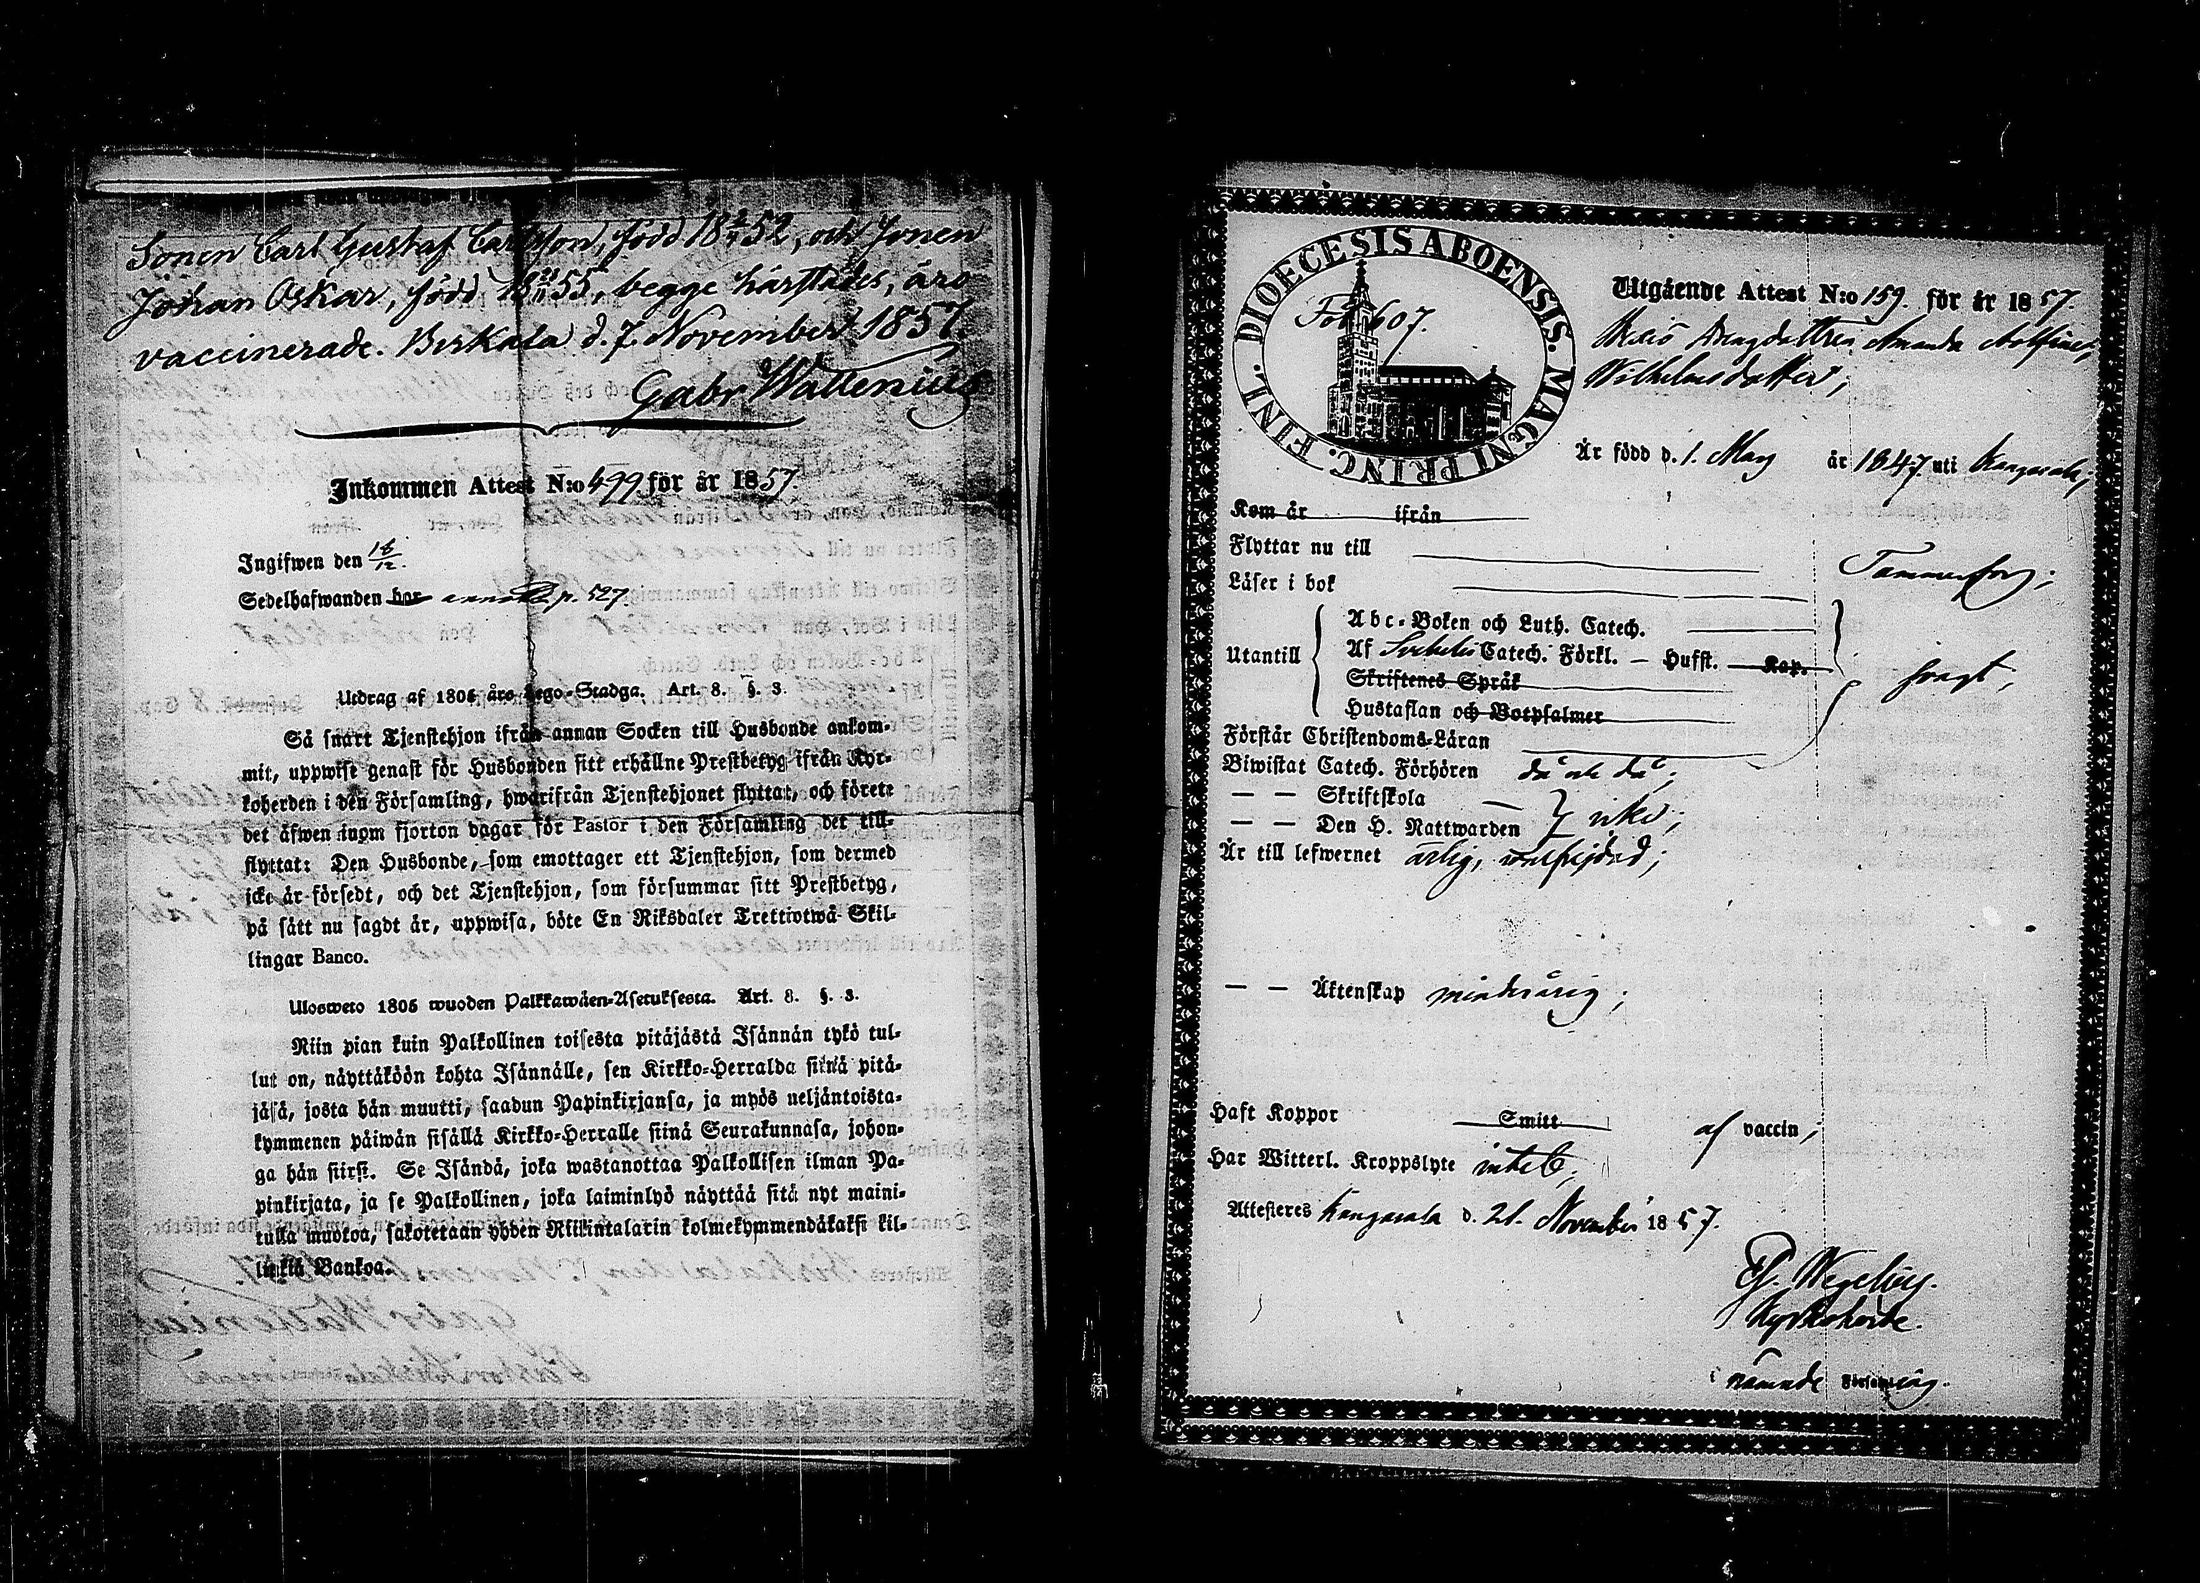 Sonen Carl Gustaf Carlsson, född 18 52, och Sonen
Johan Oskar, född 18 55, begge härstädes, äro
vaccinerade. Birkala d. 7 November 1857.
Gabr Wallenius
Inkommen Attest N:o 499 för år 1857.
Ingifwen den 18/12.
Sedelhafwanden bor annot. p. 527.
Utdrag af 1805 års Lego-Stadga. Art. 8. §. 3.
Så snart Tjenstehjon ifrån annan Socken till Husbonde ankom-
mit, uppwise genast för Husbonden sitt erhållne Prestbetyg ifrån Kyr-
koherden i den Församling, hwarifrån Tjenstehjonet flyttat, och förete
det äfwen inom fjorton dagar för Pastor i den Församling det till-
flyttat: Den Husbonde, som emottager ett Tjenstehjon, som dermed
icke är försedt, och det Tjenstehjon, som försummar sitt Prestbetyg,
på sätt nu sagdt är, uppwisa, böte En Riksdaler Trettiotwå Skil-
lingar Banco.
Ulosweto 1805 wuoden Palkkawäen-Asetuksesta. Art. 8. §. 3.
Niin pian kuin Palkollinen toisesta pitäjästä Isännän tykö tul-
lut on, näyttäköön kohta Isännälle, sen Kirkko-Herralda siinä pitä-
jäsä, josta hän muutti, saadun Papinkirjansa, ja myös neljäntoista-
kymmenen päiwän sisällä Kirkko-Herralle siinä Seurakunnasa, johon-
ga hän siirst. Se Isändä, joka wastanottaa Palkollisen ilman Pa-
pinkirjata, ja se Palkollinen, joka laiminlyö näyttää sitä nyt maini-
tulla muotoa, sakotetaan yhden Riikintalarin kolmekymmendäkaksi kil-
linkiä Bankoa.
DIOECESIS ABOENSIS. MAGNI PRINC. FINL.
Fol 607.
Utgående Attest N:o 159. för år 1857.
Drengdottren Amanda
Wilhelmsdotter,
Är född d. 1. May år 1847 uti Kangasala,
Kom år ifrån
Flyttar nu till Tammerfors;
Läser i bok
Utantill
Abc-Boken och Luth. Catech.
Af Svebelii Catech. Förkl. – Husst. – Kap.
Skriftenes Språk
Hustaflan och Botpsalmer
Förstår Christendoms-Läran
Biwistat Catech. Förhören då och då;
— — Skriftskola —
— — Den H. Nattwarden icke;
Är till lefwernet ärlig, välfrejdad;
— — Äktenskap minderårig;
Haft Koppor Smitt af vaccin;
Har Witterl. Kroppslyte intet;
Attesteres Kangasala d. 21. November 1857.
Wegelius.
Kyrkoherde.
i nämnde Församling.